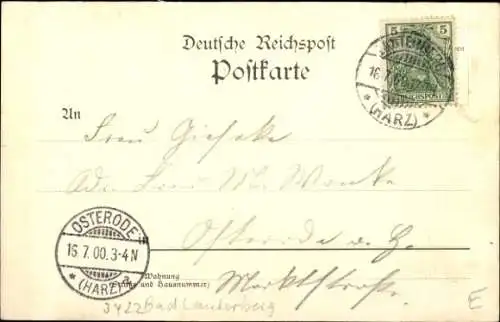 Deutsche Reichspost
Postkarte
5 5
REICHSPOST
16.7.
* (HARZ) *
An
Frau Gieseke
Adr. Frau W. Wonke
Osterode a. H.
Marktstraße
OSTERODE
15.7.00.3-4N
* (HARZ) a
Wohnung
(Straße und Hausnummer)
3422 Bad Lauterberg
E